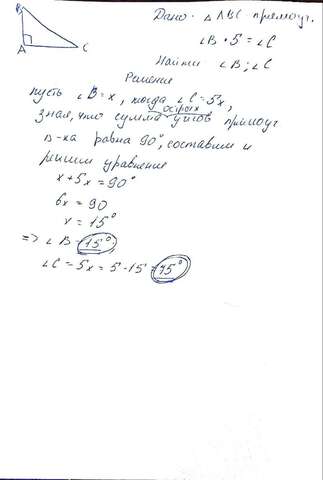 Дано: △ABC прямоуг.
B
∠B • 5 = ∠C
A
C
Найти ∠B; ∠C
Решение
пусть ∠B = x, тогда ∠C = 5x,
острых
зная, что сумма углов прямоуг
п-ка равна 90°, составим и
решим уравнение
x + 5x = 90°
6x = 90
x = 15°
=> ∠B = 15°
∠C = 5x = 5 · 15 = 75°